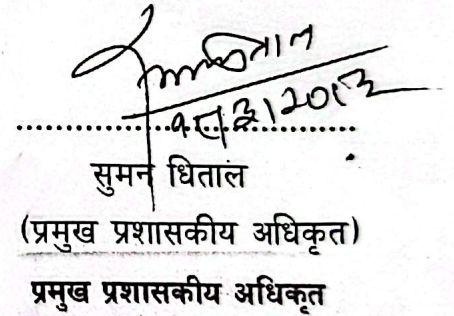 सुमन धिताल
(प्रमुख प्रशासकीय अधिकृत)
प्रमुख प्रशासकीय अधिकृत